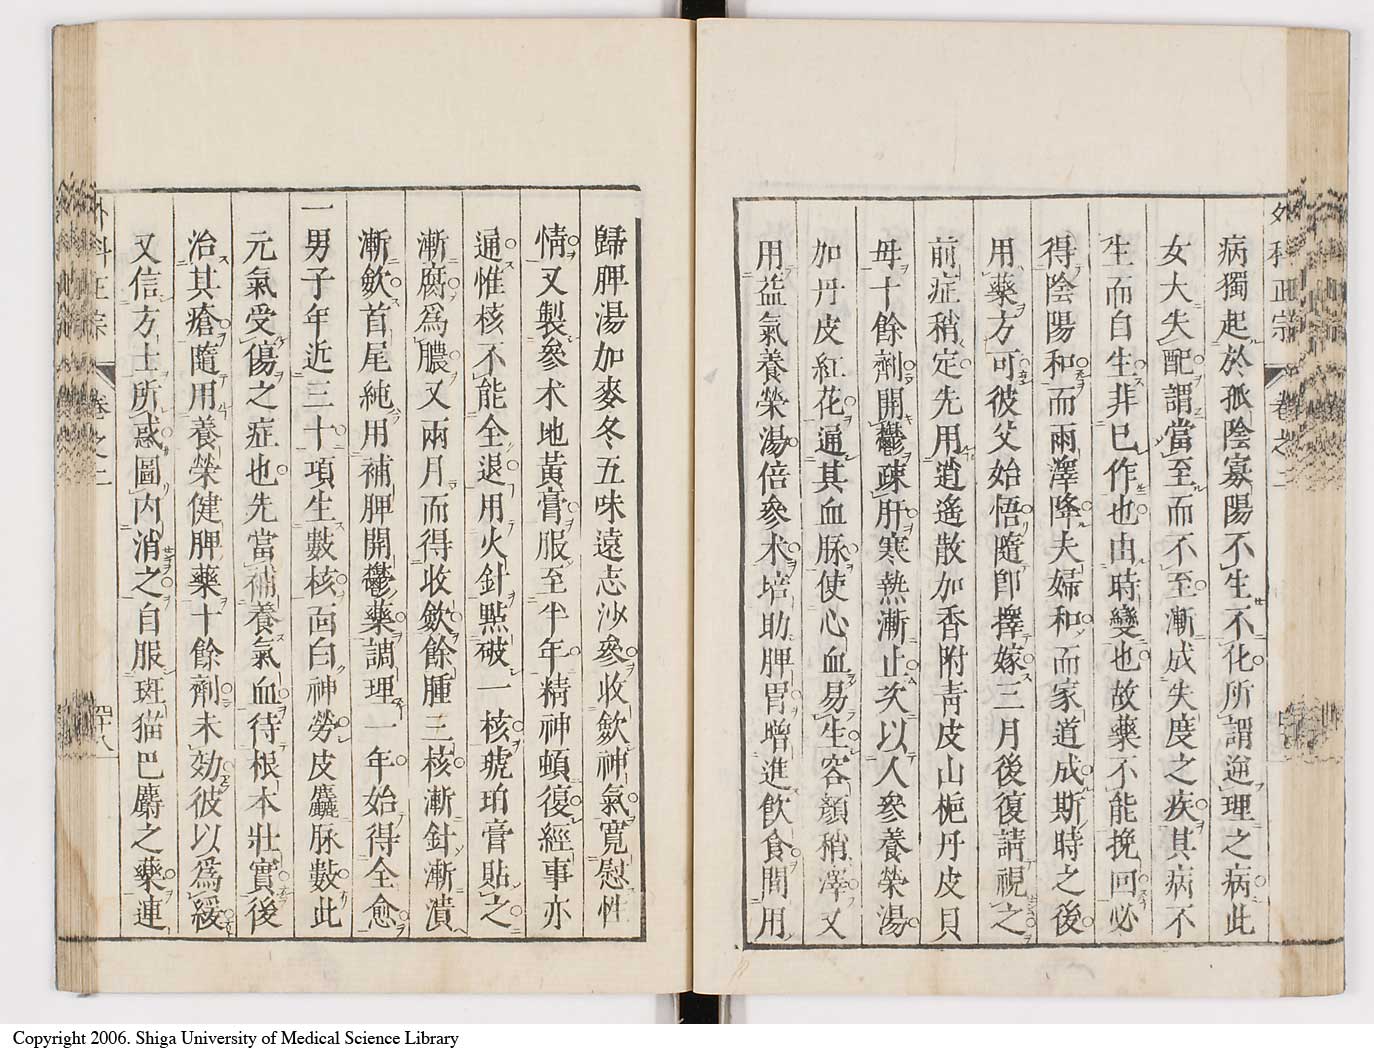 外科正宗 卷之二
病獨起於孤陰寡陽不生不化所謂逆理之病此
女大失配謂當至而不至漸成失度之疾其病不
生而自生非已作也由時變也故藥不能挽回必
得陰陽和而雨澤降夫婦和而家道成斯時之後
用藥方可彼父始悟隨卽擇嫁三月後復請視之
前症稍定先用逍遙散加香附靑皮山梔丹皮貝
母十餘劑開鬱疎肝寒熱漸止次以人參養榮湯
加丹皮紅花通其血脉使心血易生容顏稍澤又
用益氣養榮湯倍參术培助脾胃增進飮食間用
歸脾湯加麥冬五味遠志沙參收斂神氣寬慰性
情又製參术地黃膏服至半年精神頓復經事亦
通惟核不能全退用火針點破一核琥珀膏貼之
漸腐爲膿又兩月而得收斂餘腫三核漸針漸潰
漸斂首尾純用補脾開鬱藥調理一年始得全愈
一男子年近三十項生數核面白神勞皮麤脉數此
元氣受傷之症也先當補養氣血待根本壯實後
治其瘡隨用養榮健脾藥十餘劑未効彼以爲緩
又信方士所惑圖內消之自服斑猫巴麝之藥連
外科正宗 卷之二 四十八
Copyright 2006. Shiga University of Medical Science Library